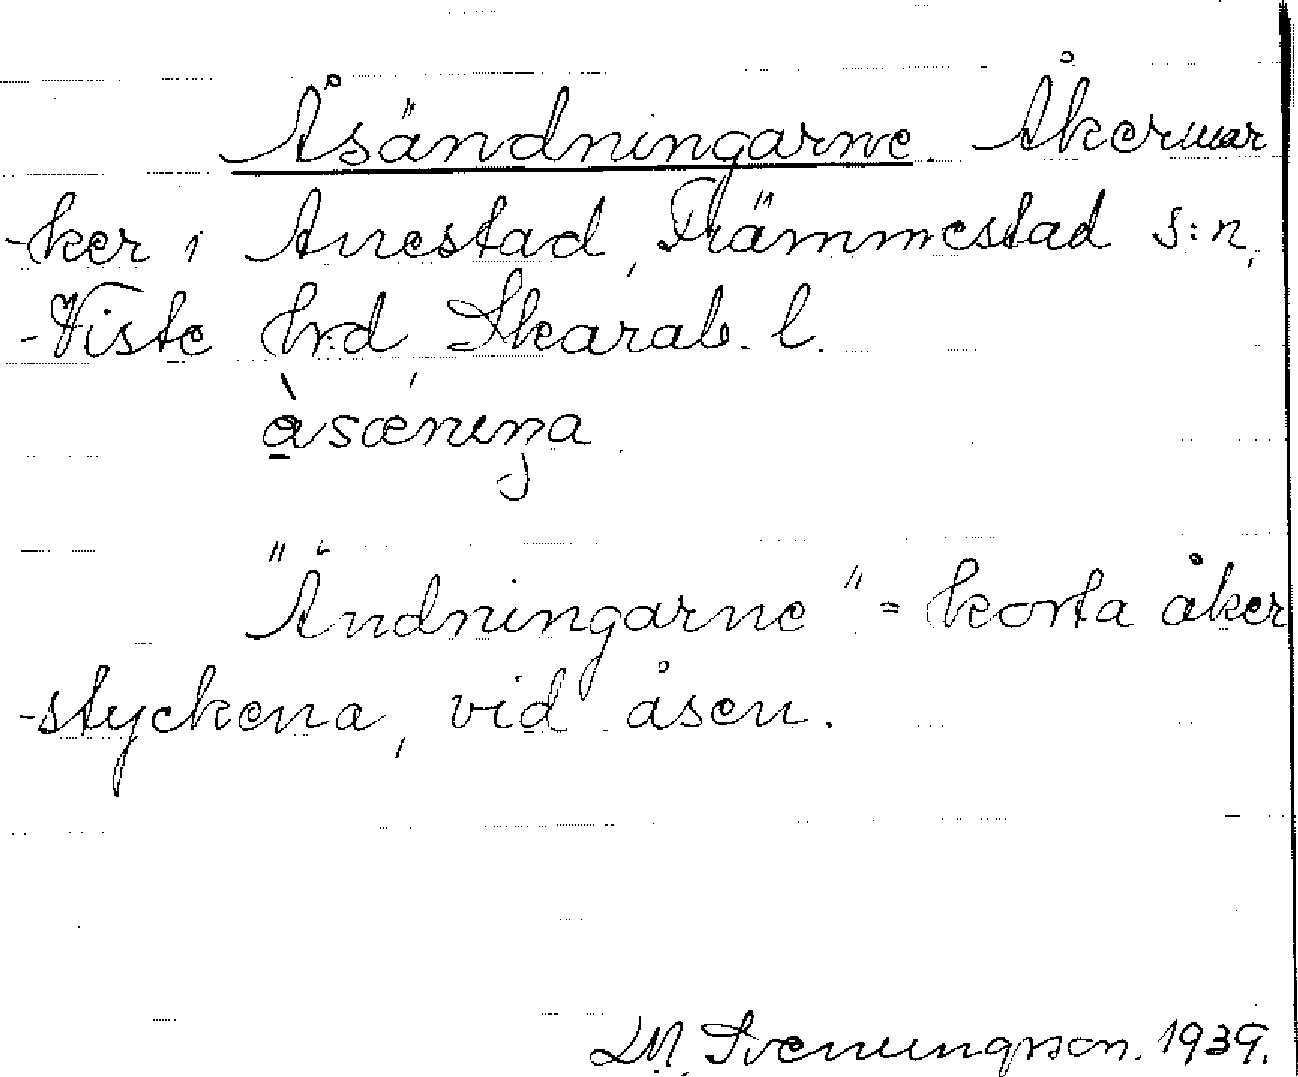 Åsändningarne. Åkermar
-ker i Anestad, Främmestad s:n,
-Viste hrd, Skarab. l.
åsæniŋa
"Ändningarne" = korta åker
-styckena, vid åsen.
LM. Svenungsson. 1939.